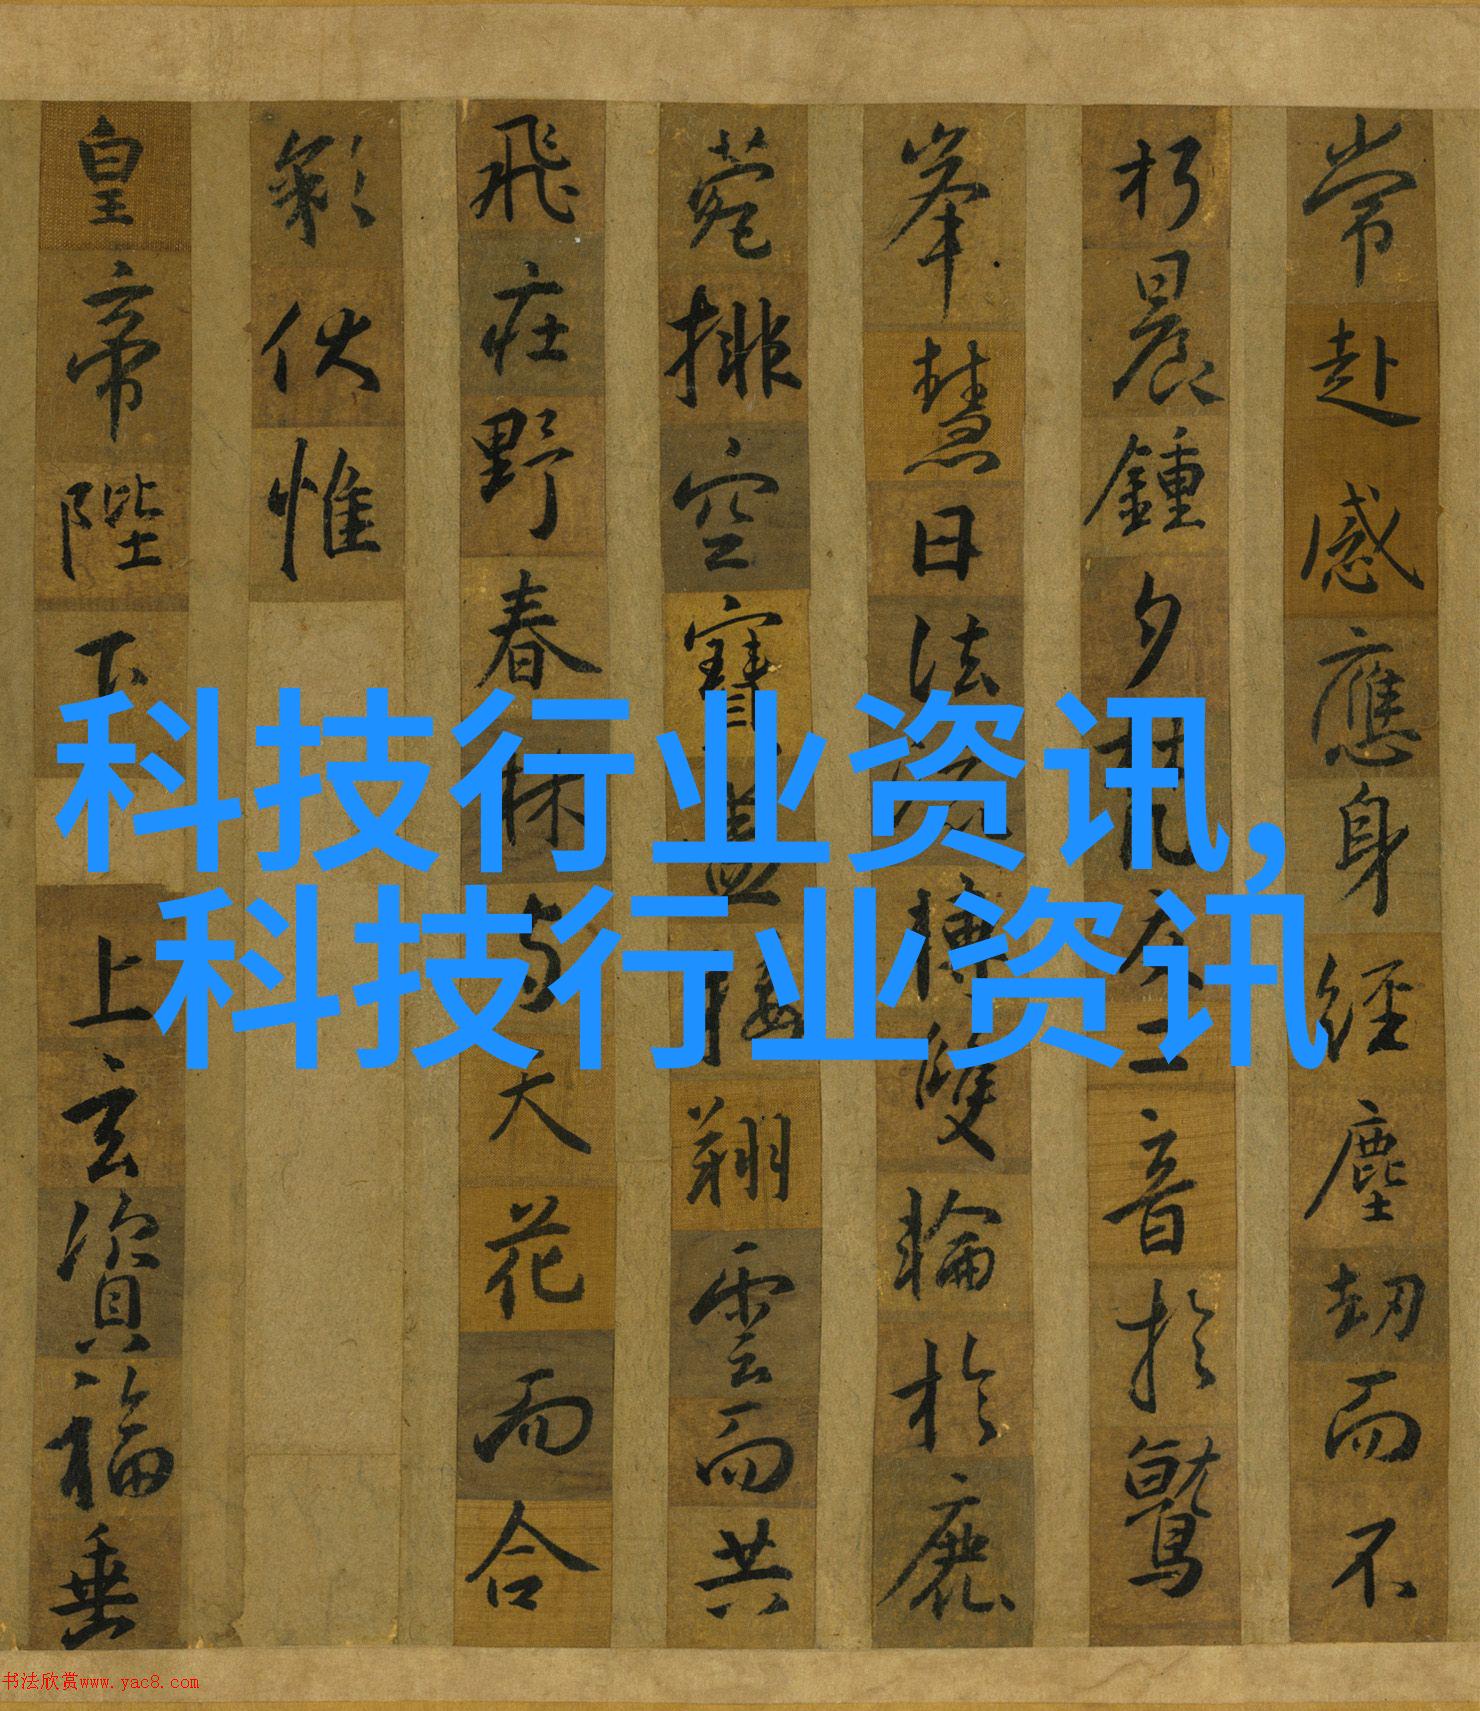 常赴感應身經塵劫而不
朽晨鍾夕梵交二音於鷲
峯慧日法流轉雙輪於鹿
菀排空寶盖接翔雲而共
飛莊野春林與天花而合
彩伏惟
皇帝陛下上玄資福垂
科技行业资讯,
科技行业资讯
书法欣赏www.yac8.com